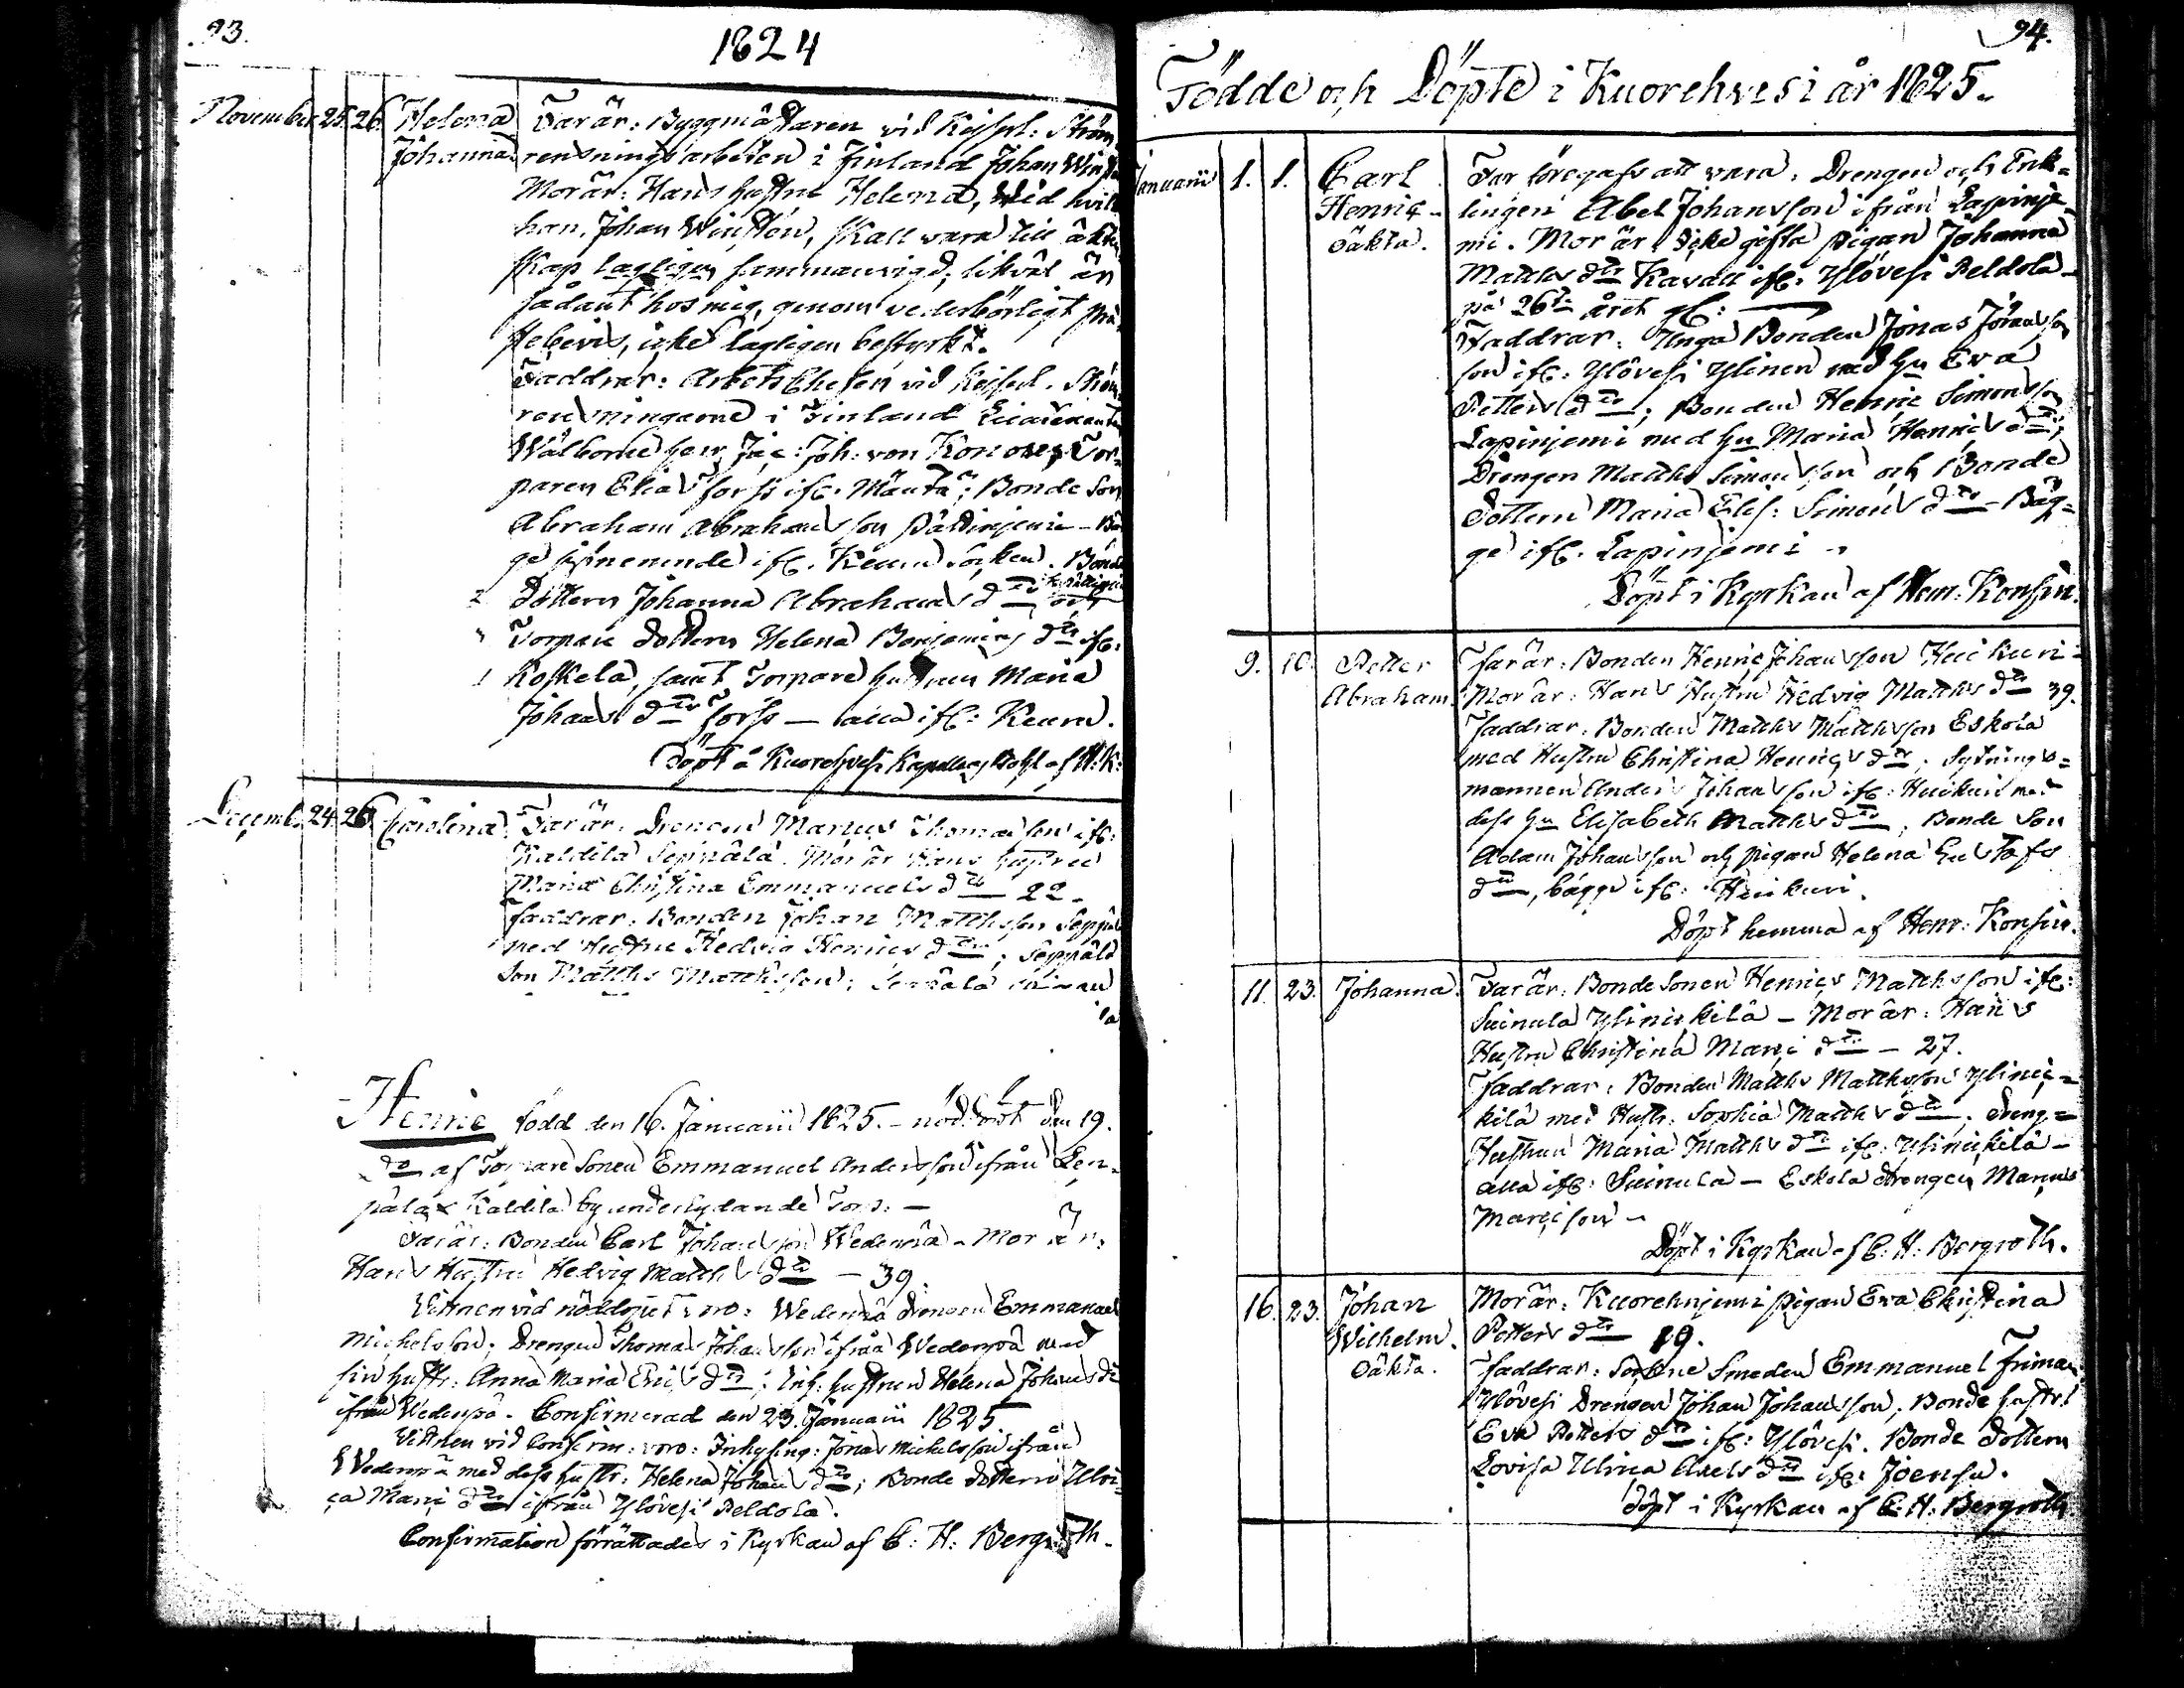 93.
1824
November 25. 26. Helena Far är: Byggmästaren vid Kejserl: Ström
Johanna. rensningsarbeten i Finland Johan Winst
Mor är: Hans hustru Helena, Wid hvil
han, Johan Winstén, skall vara till äkten
skap lagligen sammanvigd; likväl är
sådant hos mig, genom vederbörligt prä
stebevis, icke lagligen bestyrkt.
Faddrar: Arbets Chefen vid Kejserl. Ström
rensningarne i Finland Lieutenanten
Wälborne herr Jac: Joh: von Konow; Tor-
paren Elias Forss ifr. Mäntä; Bonde Son
Abraham Abrahams son Päldinjemi - Bä
ge ifr. Keuru Socken. Bonde
Dottern Johanna Abrahams dtr och
Torpare dottern Helena Benjamins dtr ifr:
Koskela, samt Torpare hustrun Maria
Johans dtr Forss - alla ifr: Keuru.
Döpt å Kuorehvesi Kapellans Bohl af H: K:
Decemb. 24. 26 Carolina. Far är: Drengen Marcus Thomas son ifr:
Kaldila Seppälä. Mor är Hans hustru
Maria Christina Emmanuels dtr 22-
Faddrar: Bonden Johan Matthsson Seppälä
med Hustru Hedvig Henrics dtr; Seppälä
Son Matths Matthsson; Seppälä
la
Henric född den 16. Januarii 1825. - nöddöpt den 19.
do af Torpare Sonen Emmanuel Andersson ifrån Lem-
pälä Kaldila by underlydande Torp: -
Far är: Bonden Carl Johansson Wedenpä - Mor är:
Hans Hustru Hedvig Matths dtr - 39.
Vittnen vid nöddopet voro: Wedenpä drengen Emmanuel
Michelsson; Drengen Thomas Johansson ifrån Wedenpä med
sin hustr: Anna Maria Erics dtr; Inh: hustrun Helena Johans dr
ifrån Wedenpä. Confirmerad den 23. Januarii 1825
Vittnen vid Confirm: voro: Inhysing: Jonas Michelsson ifrån
Wedenpä med dess hustr: Helena Johans dtr; Bonde dottern Ulri-
ca Marci dtr ifrån Ylövesi Peldola.
Confirmation förrättades i Kyrkan af C: H: Bergroth.
94.
Födde och Döpte i Kuorehvesi år 1825.
Januarii 1. 1. Carl Far föregafs att vara: Drengen och Enk-
Henric- lingen Abel Johansson ifrån Lapinje-
oäkta. mi. Mor är: icke gifta pigan Johanna
Matths dtr Kavall ifr: Ylövesi Peldola-
på 26te året gl:
Faddrar: Unga Bonden Jonas Jörans
son ifr: Ylövesi Ylinen med hu Eva
Petters dtr; Bonden Henric Simonsson
Lapinjemi med hu Maria Henrics dtr;
Drengen Matths Simonsson och Bonde
Dottern Maria Elis: Simons dtr - Bäg-
ge ifr. Lapinjemi -
Döpt i Kyrkan af Henr: Konsin.
9. 10. Petter Far är: Bonden Henric Johansson Heickuri-
Abraham. Mor är: Hans Hustru Hedvig Matths dtr 39.
Faddrar: Bonden Matths Matthsson Eskola
med Hustru Christina Henrics dtr; Sytnings-
mannen Anders Johansson ifr: Heickuri med
dess hu Elisabeth Matths dtr; Bonde Son
Adam Johansson och pigan Helena Gustafs
dtr, bägge ifr: Heickuri.
Döpt hemma af Henr: Konsin.
11. 23. Johanna. Far är: Bonde Sonen Henrics Matthsson ifr:
Suinula Ylinickilä - Mor är: Hans
Hustru Christina Marci dtr - 27.
Faddrar: Bonden Matths Matthsson Ylinic-
kilä med Hustr: Sophia Matths dtr; Dreng-
Hustrun Maria Matths dtr ifr: Ylinickilä -
alla ifr: Suinula - Eskola drengen Marcus
Marcisson -
Döpt i Kyrkan af C: H: Bergroth.
16. 23. Johan Mor är: Kuorehnjemi pigan Eva Christina
Wilhelm. Petters dtr 19.
oäkta. Faddrar: Sockne Smeden Emmanuel Friman;
Ylövesi Drengen Johan Johansson; Bonde hustr:
Eva Petters dtr ifr: Ylövesi. Bonde dottern
Lovisa Ulrica Axels dtr ifr: Joensu.
döpt i Kyrkan af C: H: Bergroth